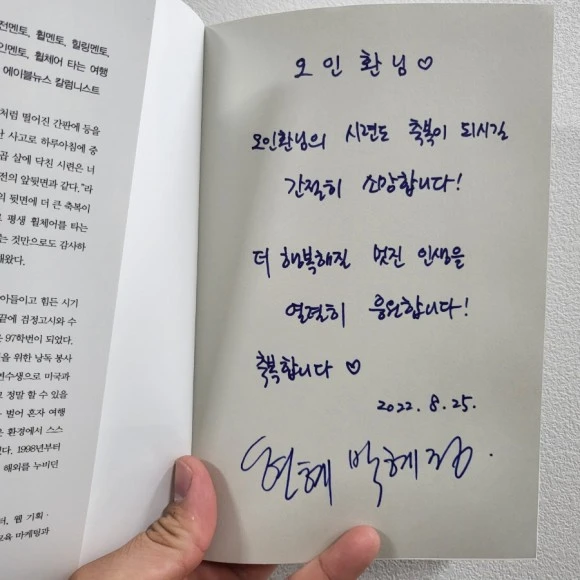 전멘토, 휠멘토, 힐링멘토,
인멘토, 휠체어 타는 여행
에이블뉴스 칼럼니스트
처럼 떨어진 간판에 등을
난 사고로 하루아침에 중
곱 살에 닥친 시련은 너
전의 앞뒷면과 같다.”라
의 뒷면에 더 큰 축복이
로 평생 휠체어를 타는
는 것만으로도 감사하
해왔다.
아들이고 힘든 시기
끝에 검정고시와 수
은 97학번이 되었다.
을 위한 낭독 봉사
연수생으로 미국과
고 정말 할 수 있을
벌어 혼자 여행
은 환경에서 스스
났다. 1998년부터
해외를 누비던
터, 웹 기획·
교육 마케팅과
오인환님♡
오인환님의 시련도 축복이 되시길
간절히 소망합니다!
더 행복해질 멋진 인생을
열렬히 응원합니다!
축복합니다♡
2022. 8. 25.
박혜정.